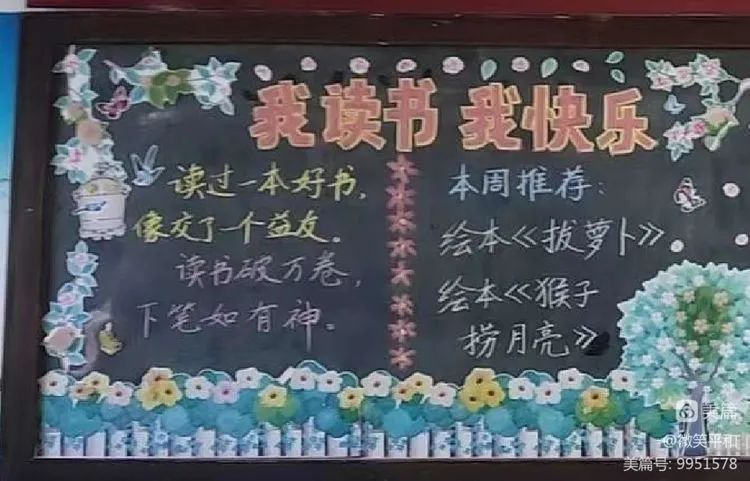 我读书 我快乐
读过一本好书，
像交了一个益友。
读书破万卷，
下笔如有神。
本周推荐：
绘本《拔萝卜》
绘本《猴子
捞月亮》
美篇
@微笑平和
美篇号: 9951578